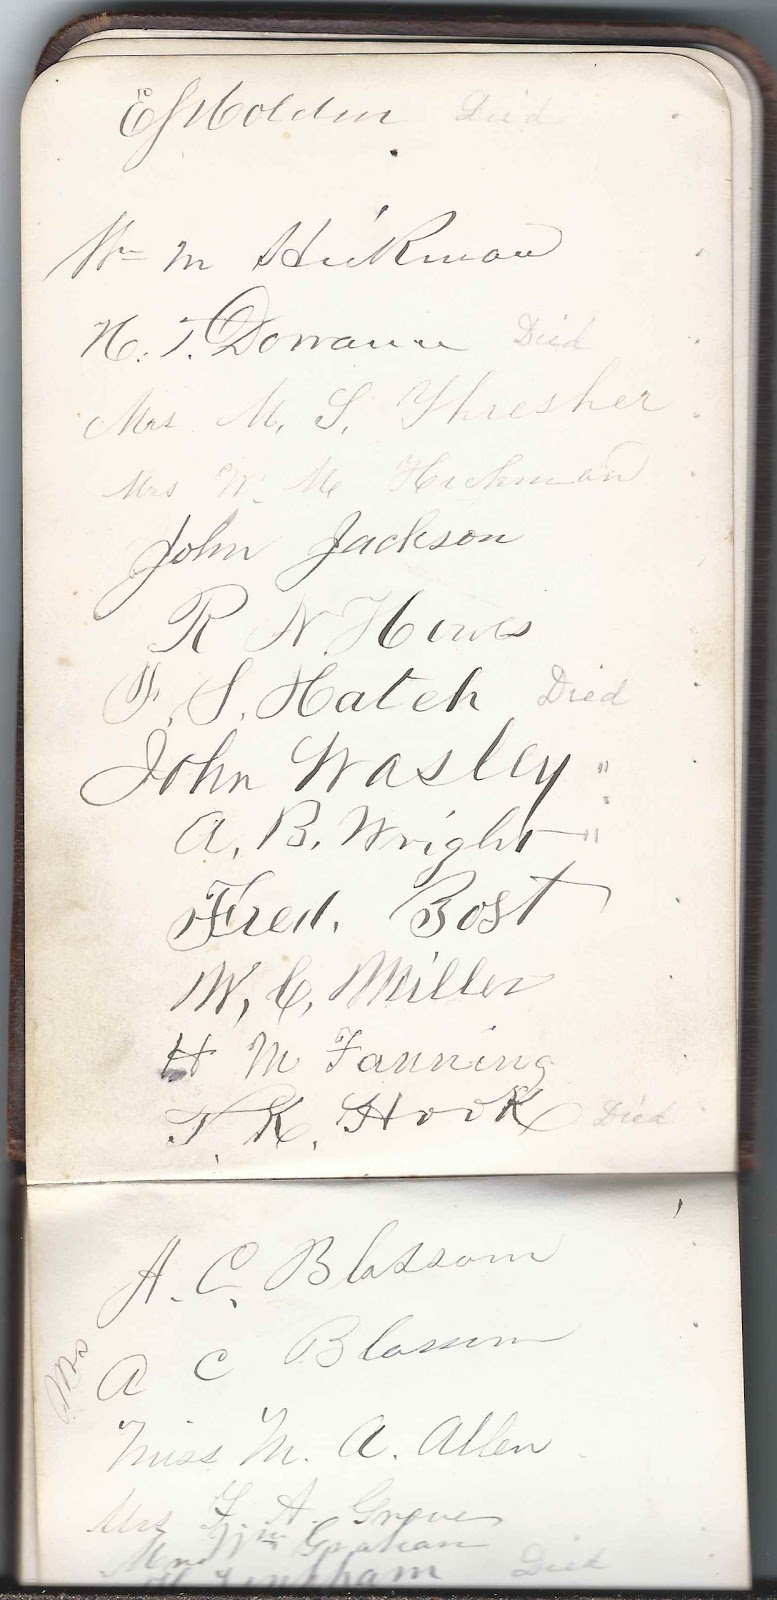 E J Holden Died
Wm M Hickman
H. T. Dorrance Died
Mrs M. S. Thresher
Mrs W. M Hickman
John Jackson
R N Howes
F. S. Hatch Died
John Wasley "
A. B. Wright "
Fred. Bost
W, C, Miller
H M Fanning
T. K. Hook Died
A. C. Blossom
Mrs A C Blossom
Miss M. A. Allen
Mrs F. A. Groves
Mrs Wm Graham
Died